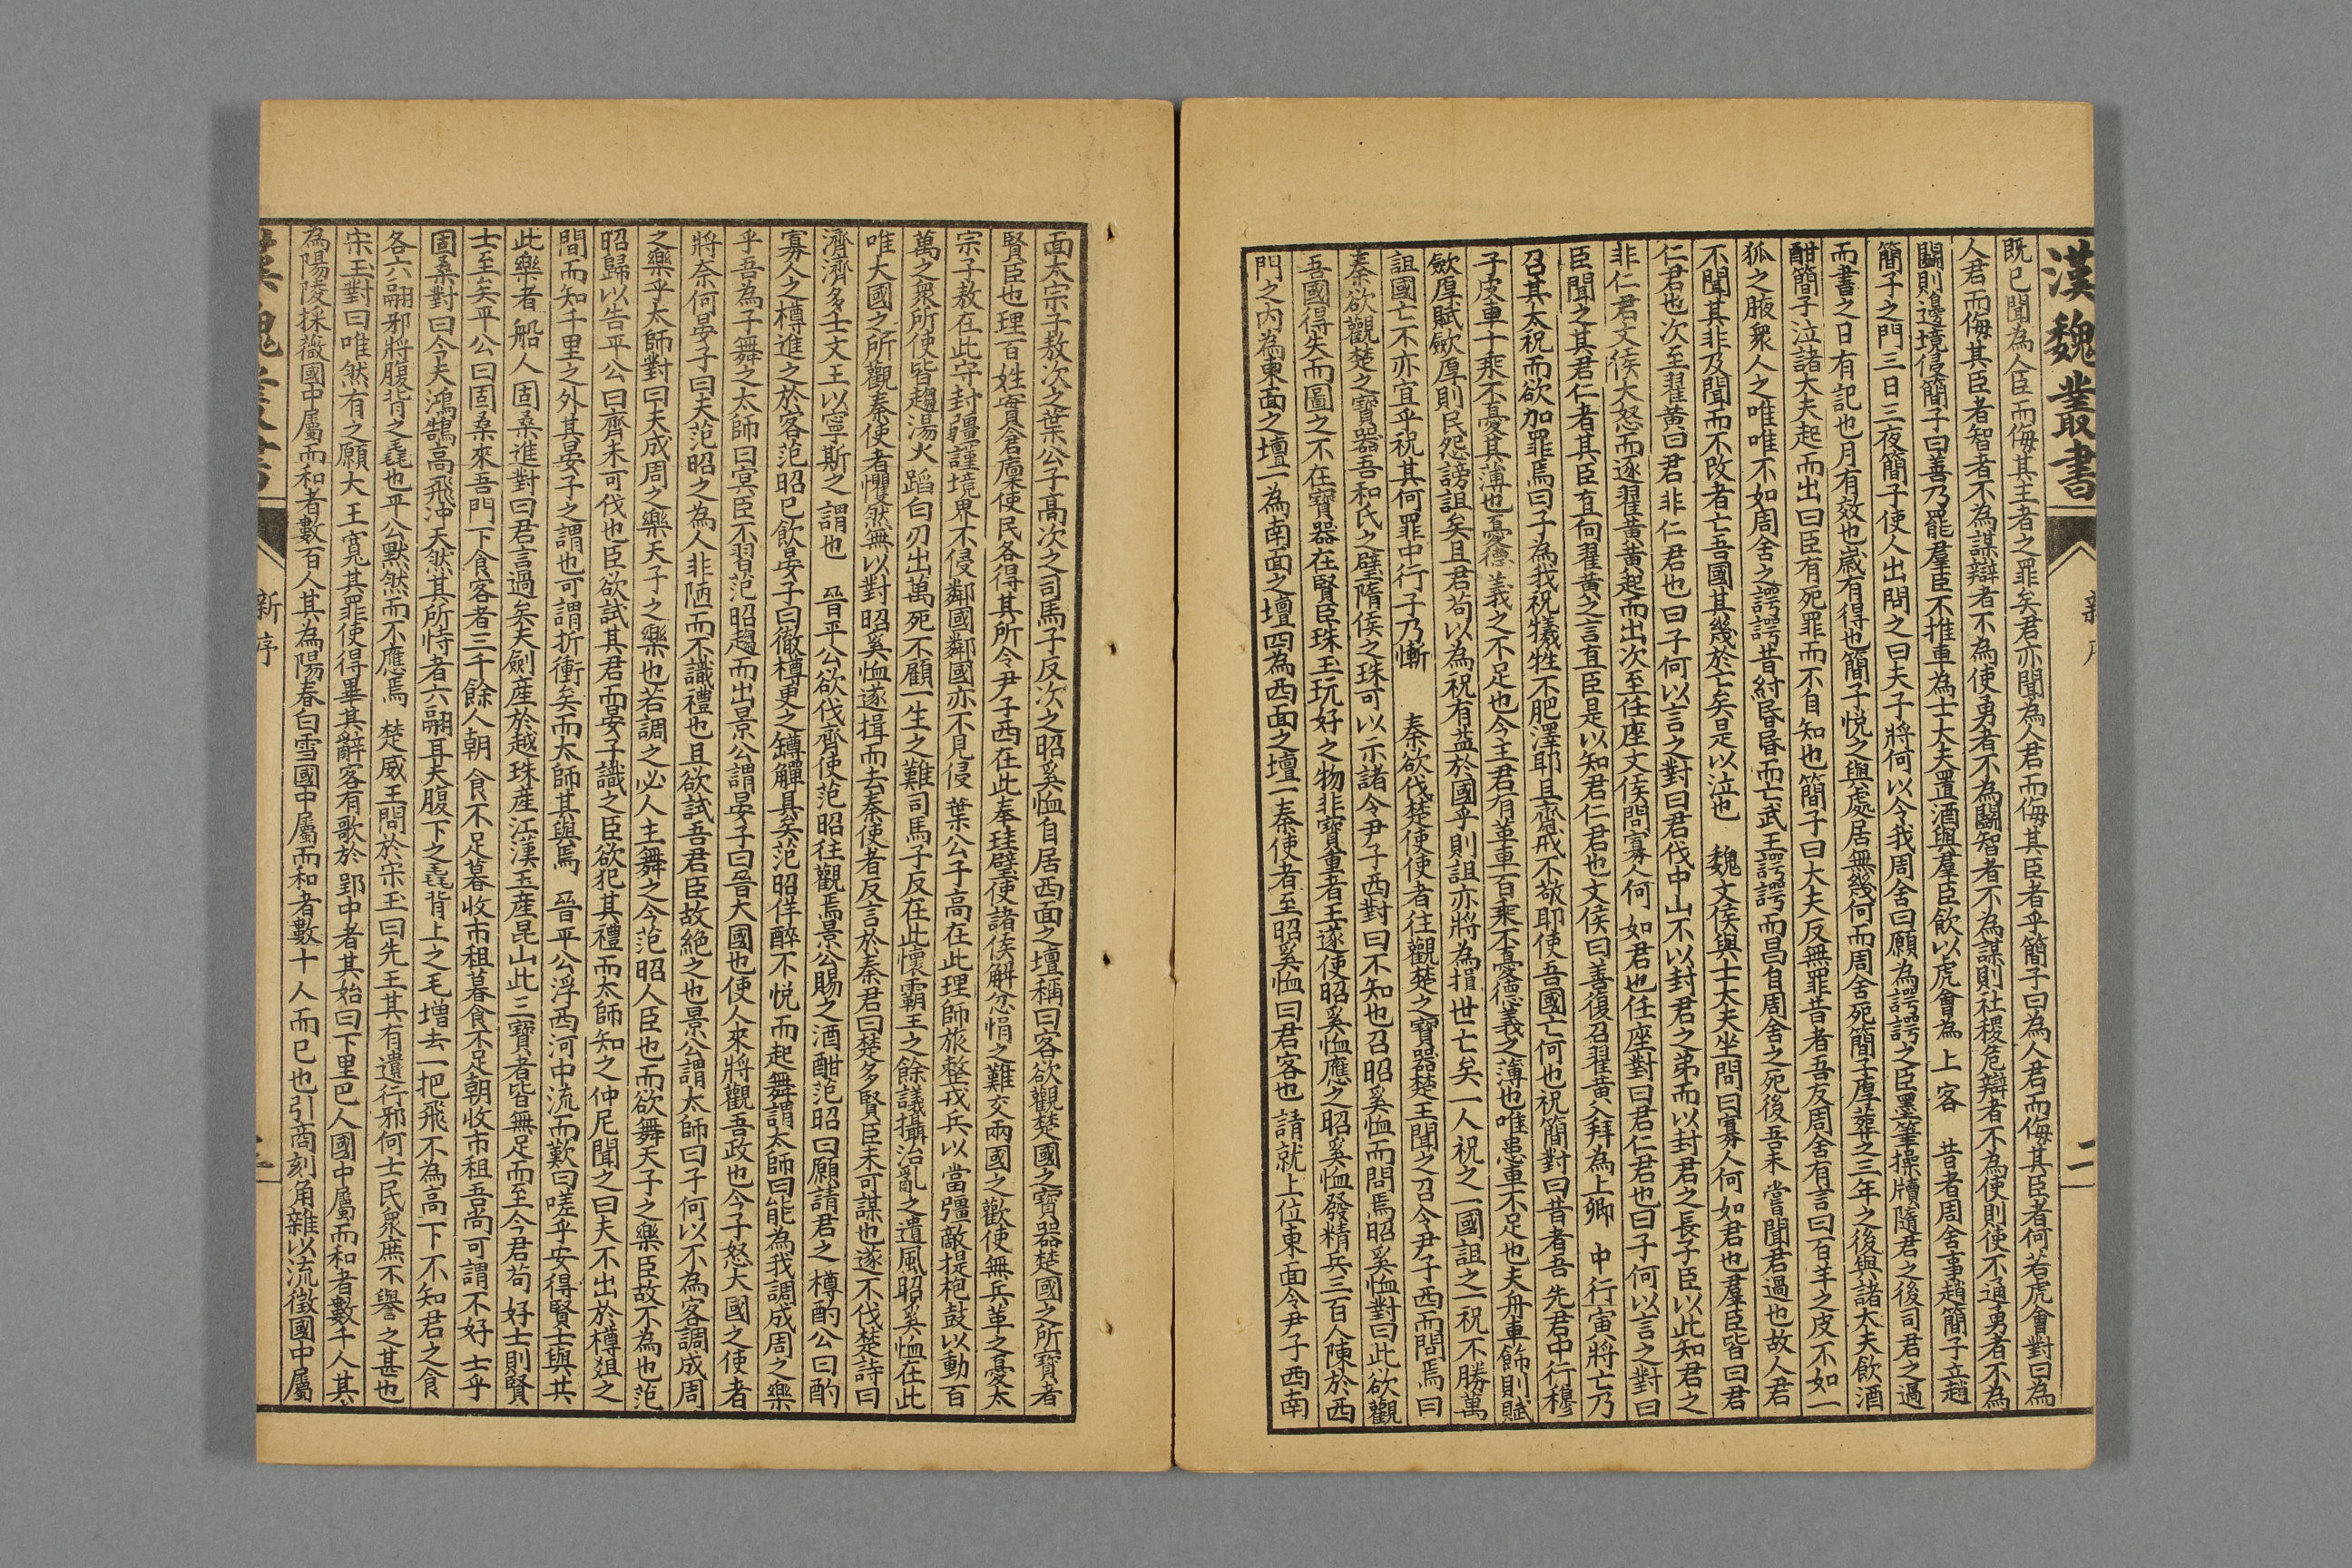 漢魏叢書
新序
二
既已聞為人臣而侮其主者之罪矣君亦聞為人君而侮其臣者乎簡子曰為人君而侮其臣者何若虎會對曰為
人君而侮其臣者智者不為謀辯者不為使勇者不為鬭智者不為謀則社稷危辯者不為使則使不通勇者不為
鬭則邊境侵簡子曰善乃罷羣臣不推車為士大夫置酒與羣臣飲以虎會為上客　昔者周舍事趙簡子立趙
簡子之門三日三夜簡子使人出問之曰夫子將何以令我周舍曰願為諤諤之臣墨筆操牘隨君之後司君之過
而書之日有記也月有效也歲有得也簡子悅之與處居無幾何而周舍死簡子厚葬之三年之後與諸大夫飲酒
酣簡子泣諸大夫起而出曰臣有死罪而不自知也簡子曰大夫反無罪昔者吾友周舍有言曰百羊之皮不如一
狐之腋衆人之唯唯不如周舍之諤諤昔紂昏昏而亡武王諤諤而昌自周舍之死後吾未嘗聞君過也故人君
不聞其非及聞而不改者亡吾國其幾於亡矣是以泣也　魏文侯與士大夫坐問曰寡人何如君也羣臣皆曰君
仁君也次至翟黄曰君非仁君也曰子何以言之對曰君伐中山不以封君之弟而以封君之長子臣以此知君之
非仁君文侯大怒而逐翟黄黄起而出次至任座文侯問寡人何如君也任座對曰君仁君也曰子何以言之對曰
臣聞之其君仁者其臣直向翟黄之言直臣是以知君仁君也文侯曰善復召翟黄入拜為上卿　中行寅將亡乃
召其太祝而欲加罪焉曰子為我祝犧牲不肥澤耶且齋戒不敬耶使吾國亡何也祝簡對曰昔者吾先君中行穆
子皮車十乘不憂其薄也憂德義之不足也今主君有革車百乘不憂德義之薄也唯患車不足也夫舟車飾則賦
斂厚賦斂厚則民怨謗詛矣且君苟以為祝有益於國乎則詛亦將為損世亡矣一人祝之一國詛之一祝不勝萬
詛國亡不亦宜乎祝其何罪中行子乃慚　秦欲伐楚使使者往觀楚之寶器楚王聞之召令尹子西而問焉曰
秦欲觀楚之寶器吾和氏之璧隋侯之珠可以示諸令尹子西對曰不知也召昭奚恤而問焉昭奚恤對曰此欲觀
吾國得失而圖之不在寶器在賢臣珠玉玩好之物非寶重者王遂使昭奚恤應之昭奚恤發精兵三百人陳於西
門之内為東面之壇一為南面之壇四為西面之壇一秦使者至昭奚恤曰君客也請就上位東面令尹子西南
面太宗子敖次之葉公子高次之司馬子反次之昭奚恤自居西面之壇稱曰客欲觀楚國之寶器楚國之所寶者
賢臣也理百姓實倉廩使民各得其所令尹子西在此奉珪璧使諸侯解忿悁之難交兩國之歡使無兵革之憂太
宗子敖在此守封疆謹境界不侵鄰國鄰國亦不見侵葉公子高在此理師旅整戎兵以當彊敵提枹鼓以動百
萬之衆所使皆趨湯火蹈白刃出萬死不顧一生之難司馬子反在此懷霸王之餘議攝治亂之遺風昭奚恤在此
唯大國之所觀秦使者懼然無以對昭奚恤遂揖而去秦使者反言於秦君曰楚多賢臣未可謀也遂不伐楚詩曰
濟濟多士文王以寧斯之謂也　晉平公欲伐齊使范昭往觀焉景公賜之酒酣范昭曰願請君之樽酌公曰酌
寡人之樽進之於客范昭已飲晏子曰徹樽更之罇觶具矣范昭佯醉不悅而起舞謂太師曰能為我調成周之樂
乎吾為子舞之太師曰冥臣不習范昭趨而出景公謂晏子曰晉大國也使人來將觀吾政也今子怒大國之使者
將奈何晏子曰夫范昭之為人非陋而不識禮也且欲試吾君臣故絶之也景公謂太師曰子何以不為客調成周
之樂乎太師對曰夫成周之樂天子之樂也若調之必人主舞之今范昭人臣也而欲舞天子之樂臣故不為也范
昭歸以告平公曰齊未可伐也臣欲試其君而晏子識之臣欲犯其禮而太師知之仲尼聞之曰夫不出於樽爼之
間而知千里之外其晏子之謂也可謂折衝矣而太師其與焉　晉平公浮西河中流而歎曰嗟乎安得賢士與共
此樂者船人固桑進對曰君言過矣夫劍產於越珠產江漢玉產昆山此三寶者皆無足而至今君苟好士則賢
士至矣平公曰固桑來吾門下食客者三千餘人朝食不足暮收市租暮食不足朝收市租吾尚可謂不好士乎
固桑對曰今夫鴻鵠高飛沖天然其所恃者六翮耳夫腹下之毳背上之毛增去一把飛不為高下不知君之食
客六翮邪將腹背之毳也平公默然而不應焉　楚威王問於宋玉曰先王其有遺行邪何士民衆庶不譽之甚也
宋玉對曰唯然有之願大王寬其罪使得畢其辭客有歌於郢中者其始曰下里巴人國中屬而和者數千人其
為陽陵採薇國中屬而和者數百人其為陽春白雪國中屬而和者數十人而已也引商刻角雜以流徵國中屬
新序